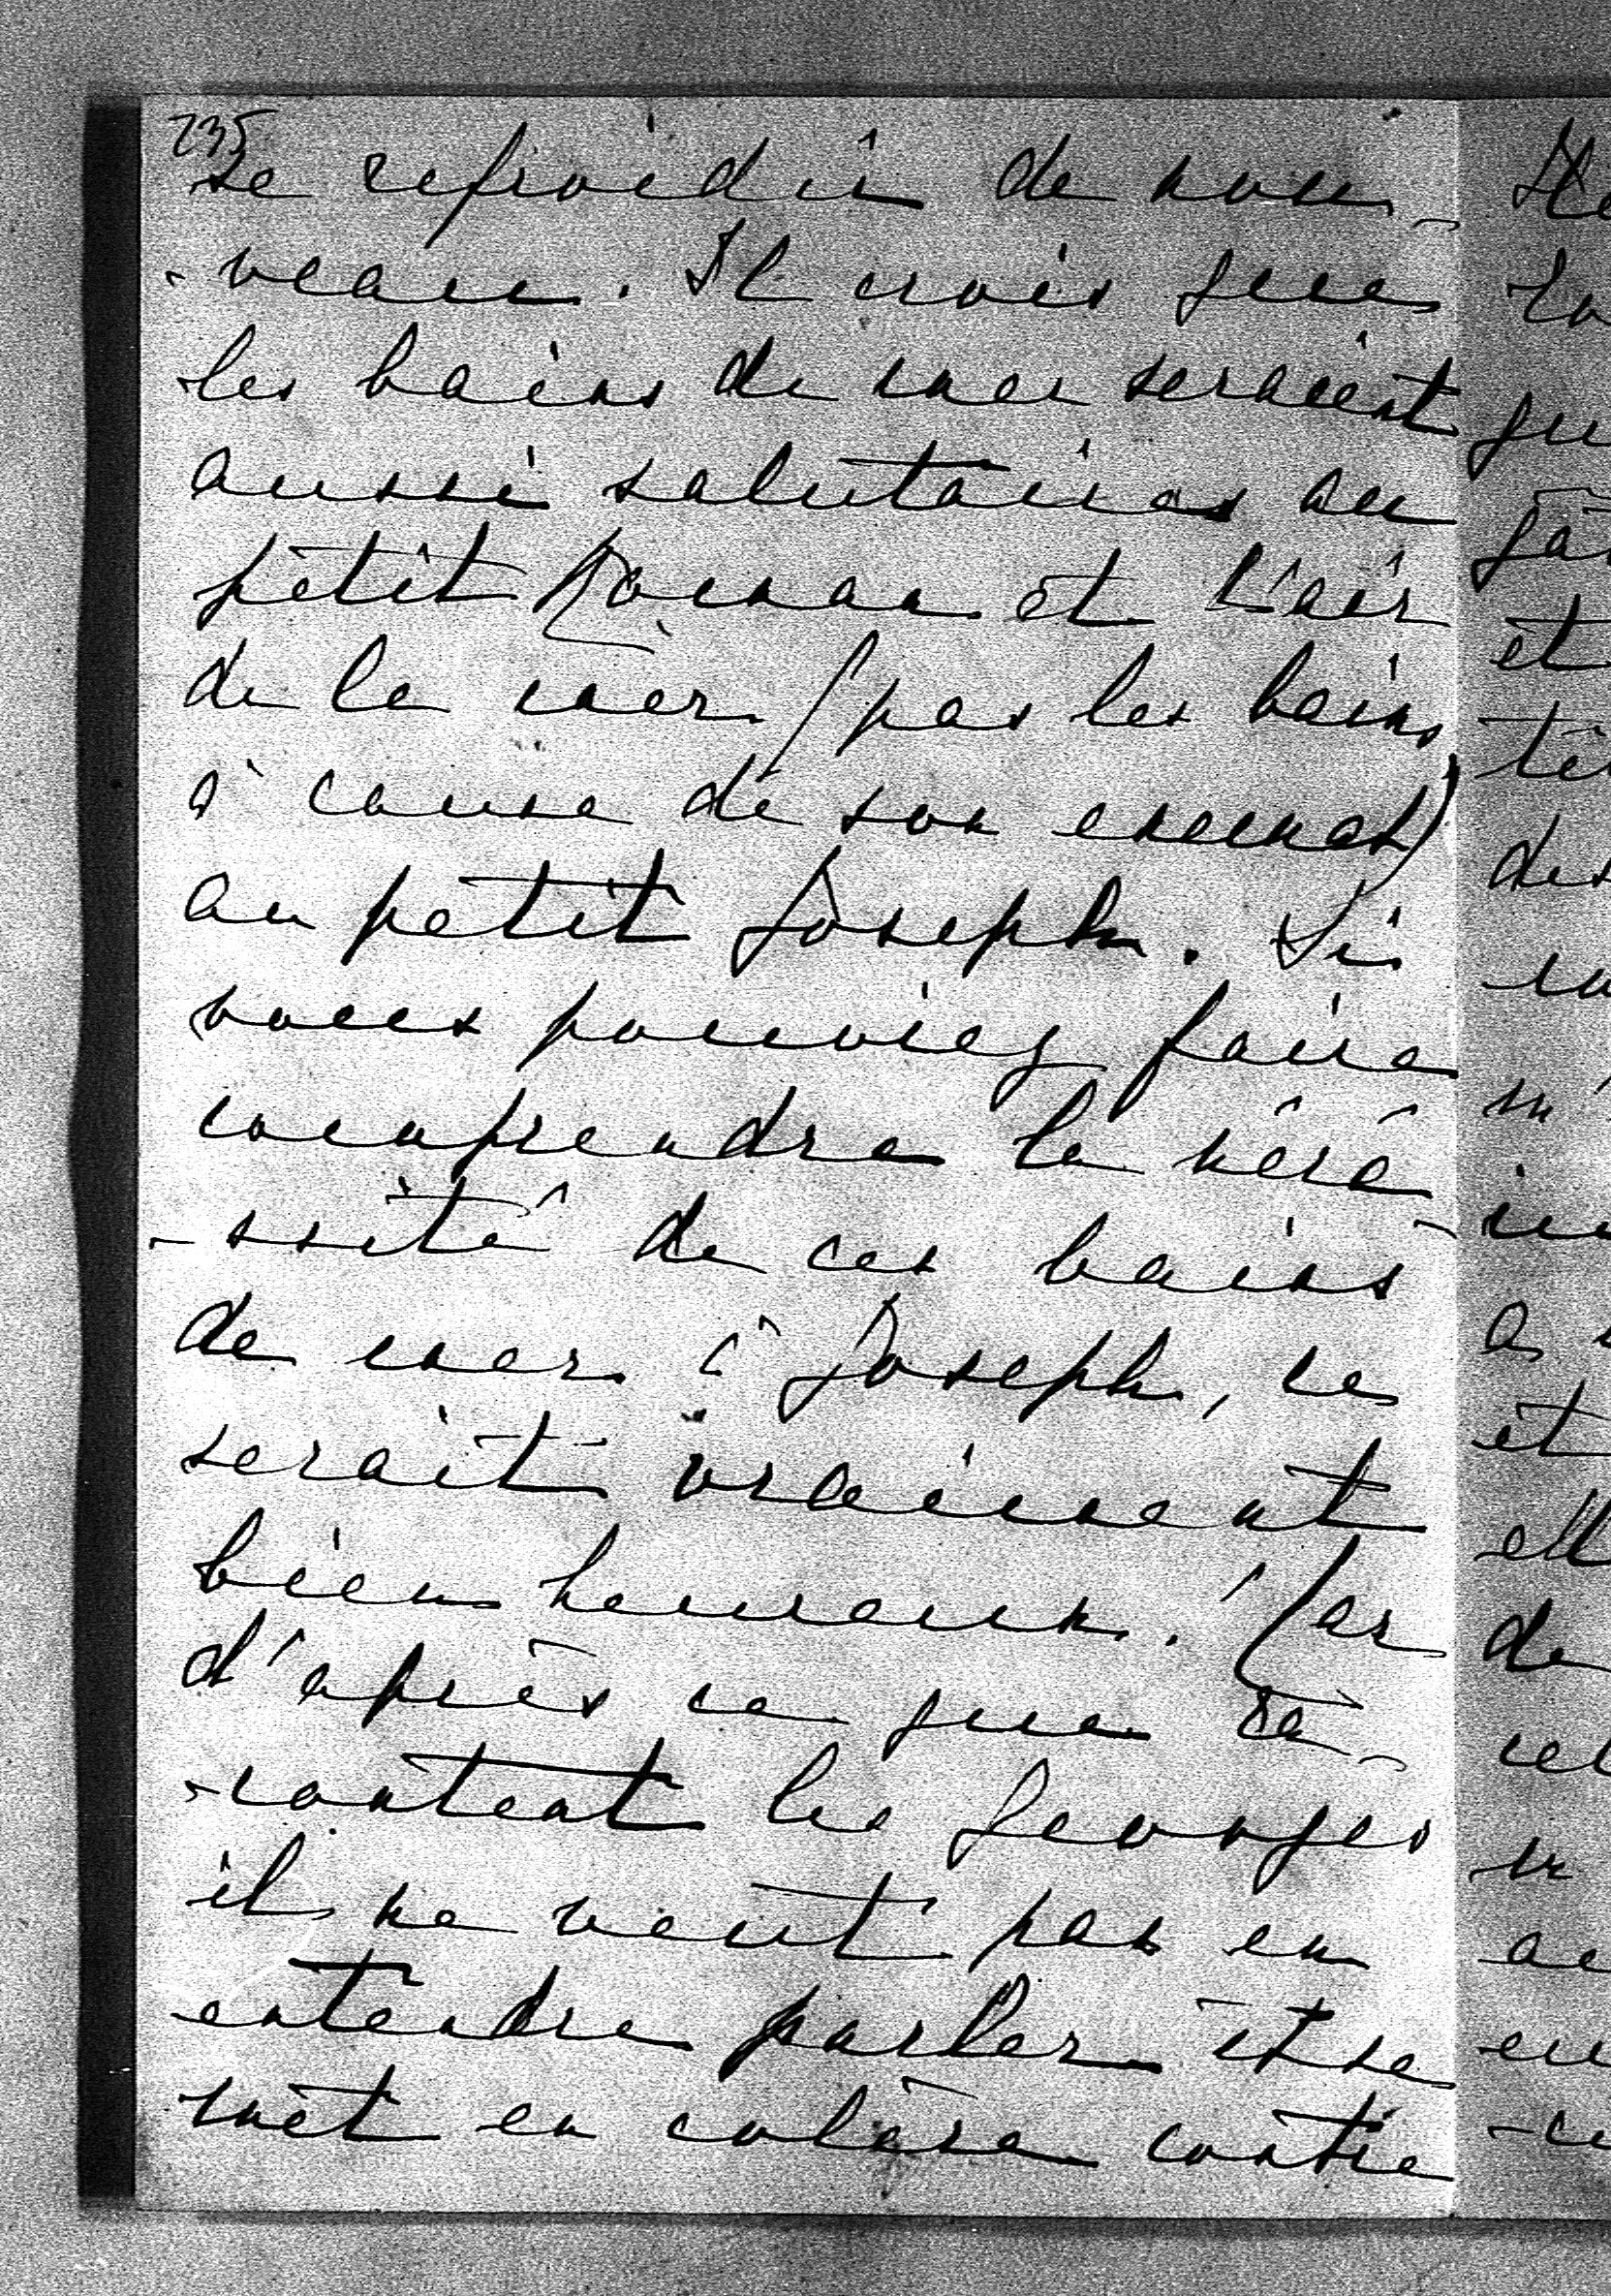 235
se refroidir de nou-
-veau. Il crois que
les bains de mer seraient
aussi salutaires au
petit Roman et l'air
de la mer (pas les bains
à cause de son eczema)
au petit Joseph. Si
vous pouviez faire
comprendre la néce-
-ssité de ces bains
de mer à Joseph, ce
serait vraiment
bien heureux. Car
d'après ce que ra-
-content les Georges
il ne veut pas en
entendre parler et se
met en colère contre